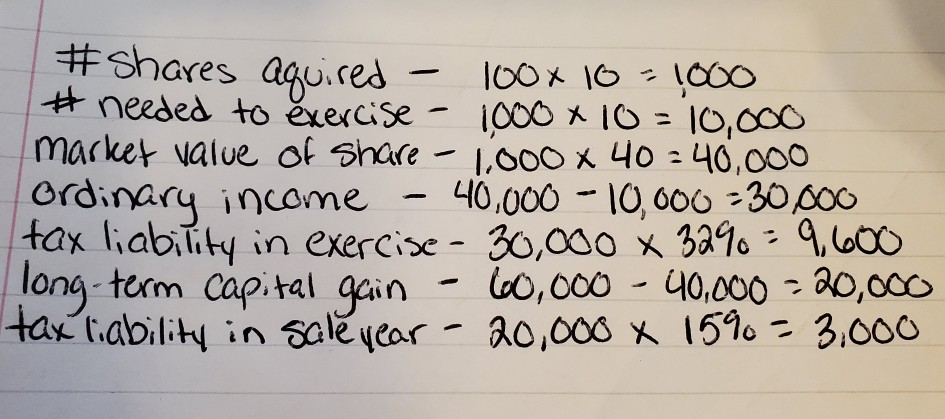 # shares aquired - 100 x 10 = 1,000
# needed to exercise - 1,000 x 10 = 10,000
market value of share - 1,000 x 40 = 40,000
ordinary income - 40,000 - 10,000 = 30,000
tax liability in exercise - 30,000 x 32% = 9,600
long-term capital gain - 60,000 - 40,000 = 20,000
tax liability in sale year - 20,000 x 15% = 3,000